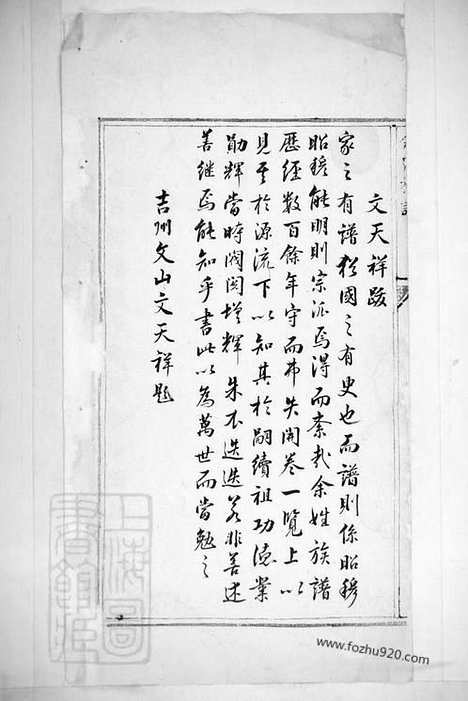 文天祥跋
家之有譜猶國之有史也而譜則係昭穆
昭穆能明則宗派焉得而紊哉余姓族譜
歷經數百餘年守而弗失開卷一覽上以
見其於源流下以知其於嗣續祖功德業
勛輝當時閥閱增輝朱衣迭迭若非善述
善繼焉能知乎書此以為萬世而當勉之
吉州文山文天祥題
上海圖書館藏
www.fozhu920.com